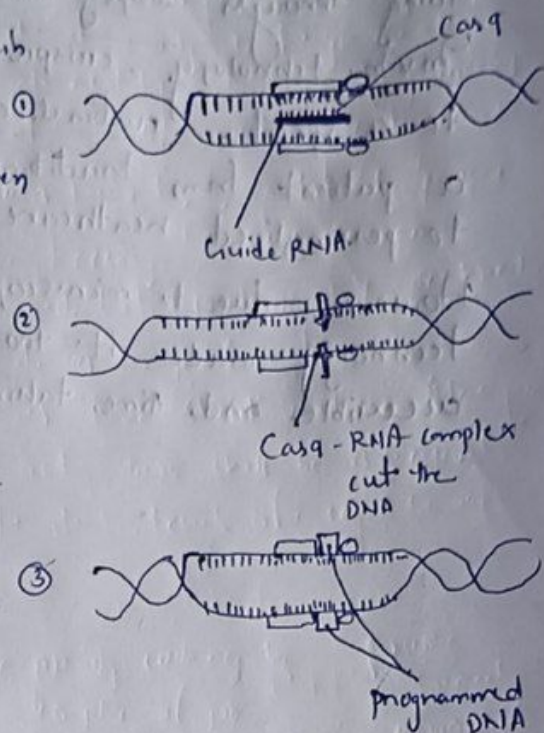 Cas9
①
Guide RNA
②
Cas9 - RNA complex
cut the
DNA
③
programmed
DNA